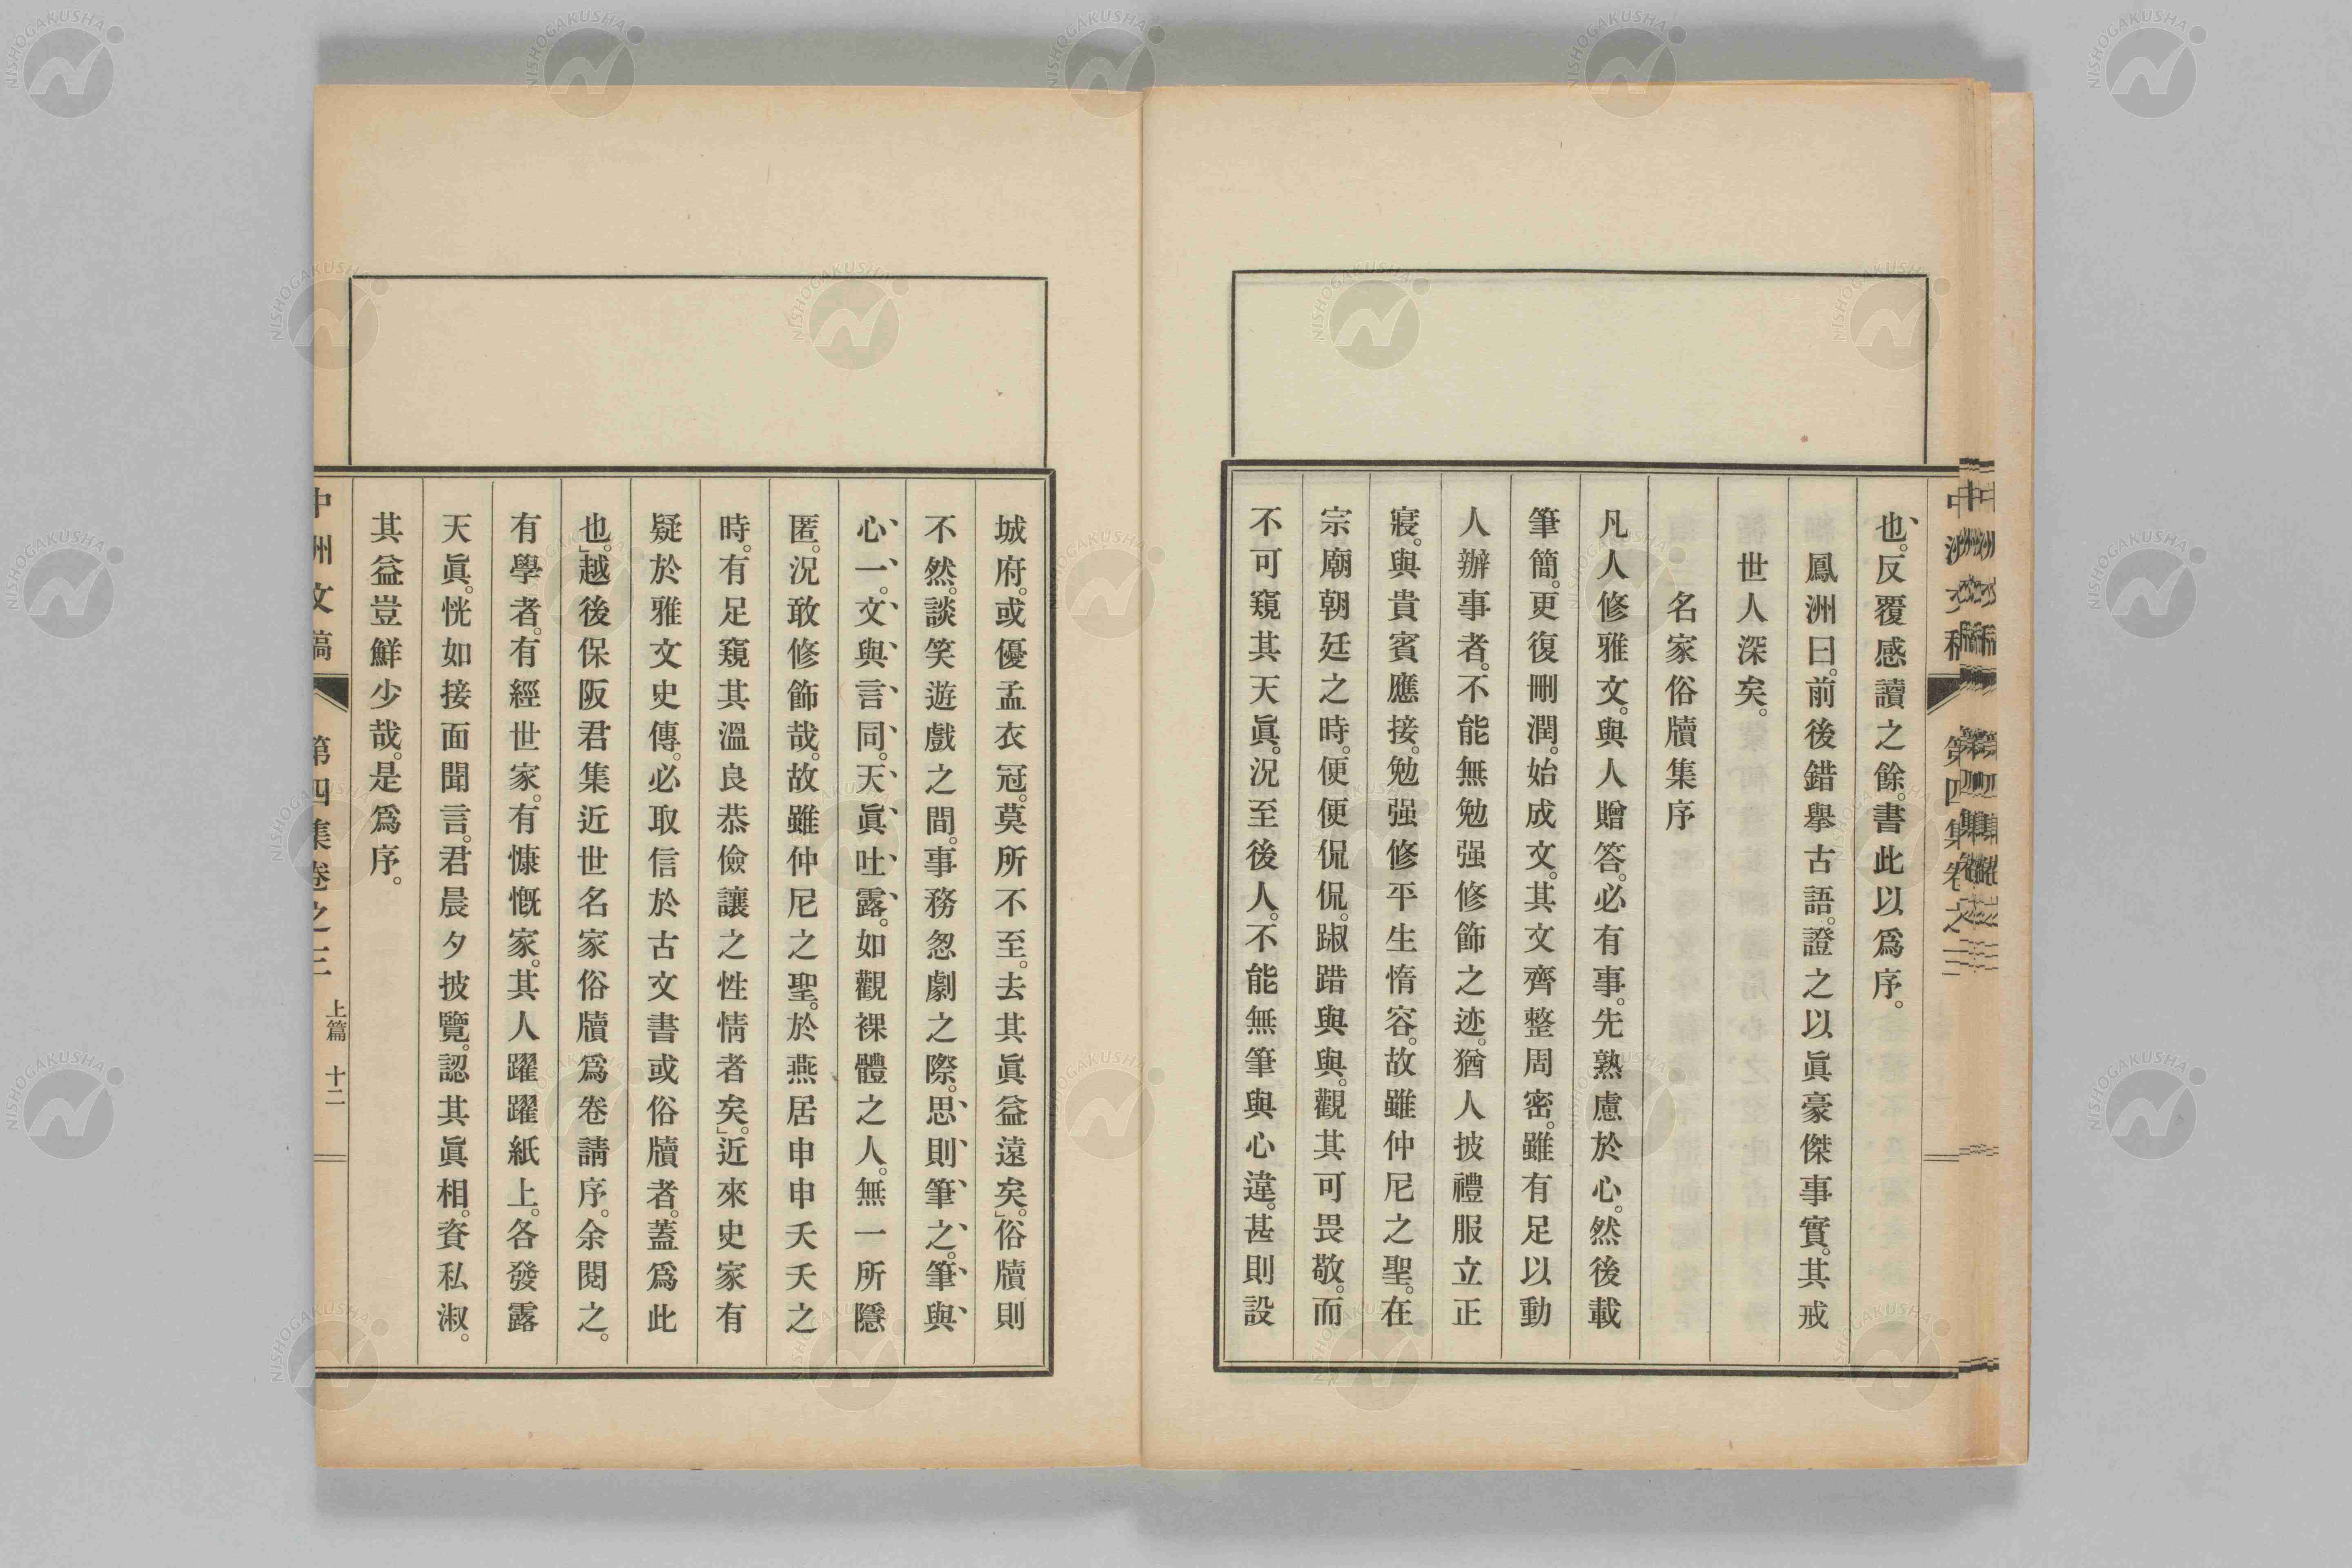 也。反覆感讀之餘。書此以爲序。
鳳洲曰。前後錯擧古語。證之以眞豪傑事實。其戒
世人深矣。
名家俗牘集序
凡人修雅文。與人贈答。必有事。先熟慮於心。然後載
筆簡。更復刪潤。始成文。其文齊整周密。雖有足以動
人辦事者。不能無勉强修飾之迹。猶人披禮服立正
寢。與貴賓應接。勉强修平生惰容。故雖仲尼之聖。在
宗廟朝廷之時。便便侃侃。踧踖與與。觀其可畏敬。而
不可窺其天眞。況至後人。不能無筆與心違。甚則設
城府。或優孟衣冠。莫所不至。去其眞益遠矣。」俗牘則
不然。談笑遊戲之間。事務怱劇之際。思則筆之。筆與
心一。文與言同。天眞吐露。如觀裸體之人。無一所隱
匿。況敢修飾哉。故雖仲尼之聖。於燕居申申夭夭之
時。有足窺其溫良恭儉讓之性情者矣。」近來史家有
疑於雅文史傳。必取信於古文書或俗牘者。蓋爲此
也。」越後保阪君集近世名家俗牘爲卷請序。余閱之。
有學者。有經世家。有慷慨家。其人躍躍紙上。各發露
天眞。恍如接面聞言。君晨夕披覽。認其眞相。資私淑。
其益豈鮮少哉。是爲序。
中洲文稿 第四集卷之三 上篇 十二
NISHOGAKUSHA